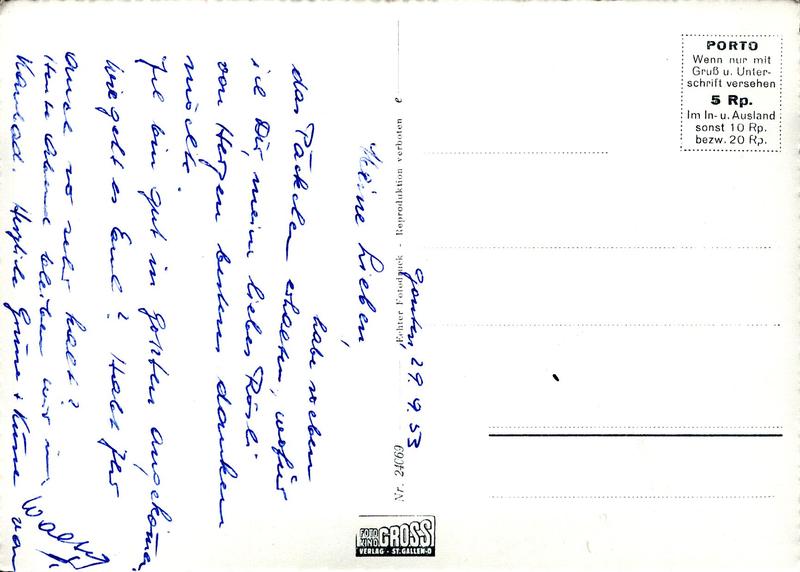 Gonten, 29.9.53
Meine Lieben,
habe soeben
das Päcklein erhalten, wofür
ich Dir, mein liebes Rösli
von Herzen bestens danken
möchte.
Ich bin gut in Gonten angekommen.
Wie geht es Euch? Habt Ihr
auch so sehr kalt?
Heute Abend bleiben wir im
Herzliche Grüsse + Küsse von
Nr. 24069 Echter Fotodruck - Reproduktion verboten e
FOTO
KINO
GROSS
VERLAG · ST.GALLEN-O
PORTO
Wenn nur mit
Gruß u. Unter-
schrift versehen
5 Rp.
Im In- u. Ausland
sonst 10 Rp.
bezw. 20 Rp.